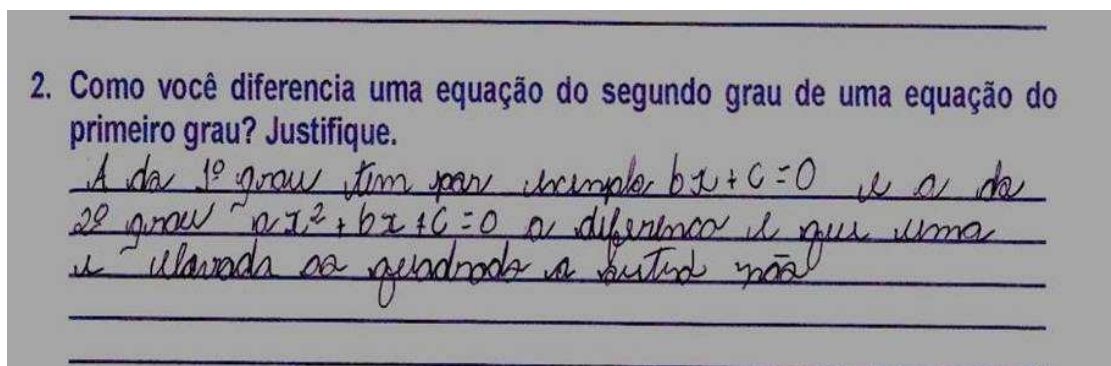 2. Como você diferencia uma equação do segundo grau de uma equação do
primeiro grau? Justifique.
A da 1º grau tem por exemplo bx + c = 0 e a da
2º grau ax² + bx + c = 0 a diferença é que uma
é elavada ao quadrado a outra não